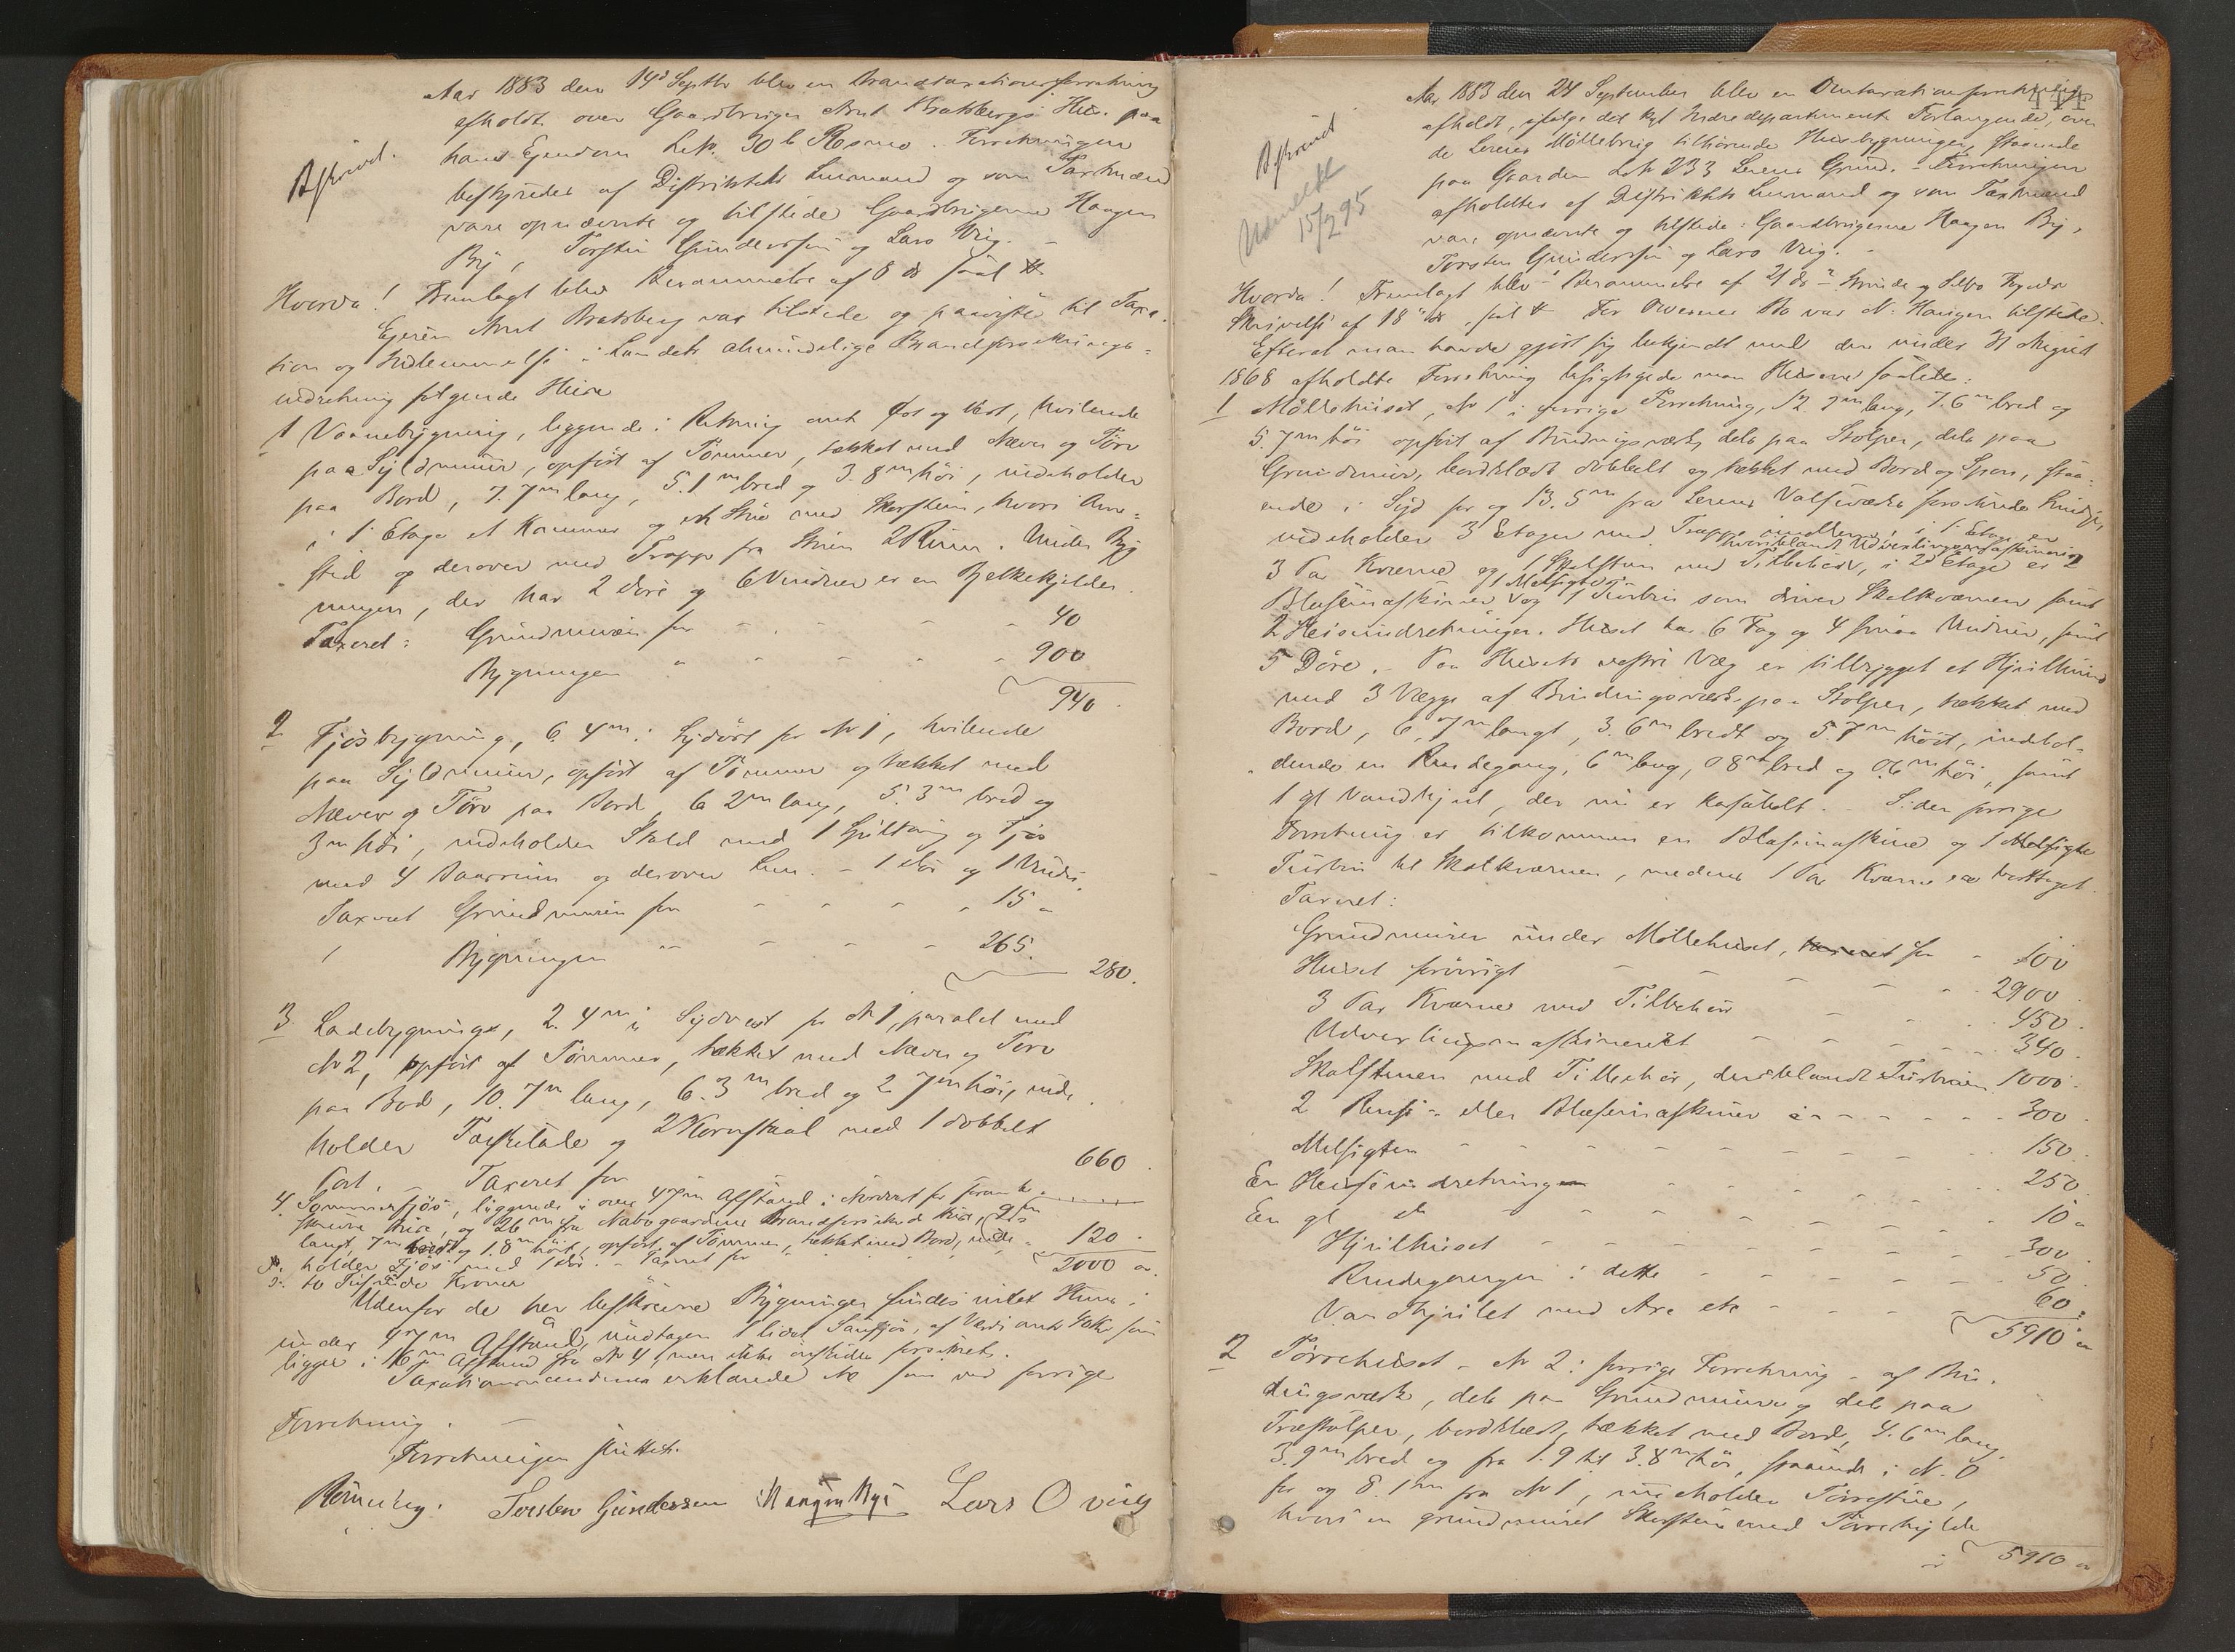 Aar 1883 den 14d Septbr blev en Brandtaxationsforretning
afholdt over Gaardbruger Arnt Bratsbergs Huse paa
Afskrevet.
hans Ejendom L.No. 30 b Rosmo. Forretningen
bestyredes af Distriktets Lensmand og som Taxtmænd
vare opnævnte og tilstede Gaardbrugerne Haagen
By, Torsten Gundersen og Lars Viig. –
Hvorda! Fremlagt blev Berammelse af 8 ds saal.
Ejeren Arnt Bratsberg var tilstede og paaviste til Taxa-
tion og Indlemmelse i Landets almindelige Brandforsikrings-
indretning følgende Huse
1 Vaanebygning, liggende i Retning omt Øst og Vest, hvilende
paa Syldmuur, opført af Tømmer, tækket med Næver og Törv
paa Bord, 7.7m lang, 5.1m bred og 3.8m höi, indeholder
i 1ste Etage et Kammer og et Stue med Skorsteen, hvori Arne-
sted og derover med Trappe fra Stuen 2 Rum. Under Byg
ningen, der har 2 Döre og 6 Vinduer er en Bjelkekjelder.
Taxeret: Grundmuren for - - - - 40
Bygningen " - - - - 900
940.
2 Fjösbygning, 6.4m i Sydöst for No 1, hvilende
paa Syldmuur, opfört af Tömmer og tækket med
Næver og Törv paa Bord, 6.2m lang, 5.3m bred og
3m höi, indeholder Stald med 1 Spiltoug og Fjös
med 4 Baasrum og derover Lem. - 1 Dör og 1 Vindu.
Taxeret Grundmuren for - - - - 15 "
Bygningen " - - - 265.
280.
3 Ladebygning, 2.4m i Sydvest for No 1, paralel med
No 2, opfört af Tömmer, tækket med Næver og Törv
paa Bord, 10.7m lang, 6.3m bred og 2.7m höi, inde-
holder Tærskelade og 2 Kornstaal med 1 dobbelt
Port. - Taxeret for 660.
4. Sommerfjös, liggende i over 47m Afstand i Nordvest for foran be-
skrevne Huse, og 26m fra Nabogaardens Brandforsikrede Huse,
langt, 7m bredt og 1.8m höit, opfört af Tömmer, tækket med Bord, inde-
holder Fjös med 1 Dör. - Taxeret for " " " 120.
to Tusinde Kroner 2000 "
Udenfor de her beskrevne Bygninger findes intet Huus i
under 47m Afstand, undtagen 1 lidet Saufjös, af Værdi omt 40 Kr som
ligger i 16m Afstand fra No 4, men ikke önskedes forsikret.
Taxationsmændene erklærede No som ved forrige
Forretning. –
Forretningen sluttet.
Torsten Gundersen Haagen Bye Lars O viig
Aar 1883 den 24 September blev en Omtaxationsforretning
afholdt, ifølge det kgl Indredepartements Forlangende, over
Afskrevet
de Lerens Möllebrug tilhörende Huusbygninger, staaende
paa Gaarden L No 233 Lerens Grund. - Forretningen
Udmeldt
15/2 95
afholdtes af Distriktets Lensmand og som Taxtmænd
vare opnævnte og tilstede: Gaardbrugerne Haagen By,
Torsten Gundersen og Lars Viig. -
Hvorda! Fremlagt blev Berammelse af 21 ds
Skrivelse af 18 ds, saal. For Eierens Bo var N. Hansen tilstede.
Efterat man havde gjört sig bekjendt med den under 31 August
1868 afholdte Forretning besigtigede man Husene saaledes:
1 Möllehuset, No 1 i forrige Forretning, 12.7m lang, 7.6m bred og
5.7m höi opfört af Bindingsværk, dels paa Stolper, dels paa
Grundmuur, bordklædt dobbelt og tækket med Bord og Spon, staa-
ende i Syd for og 13.5m fra Lerens Valseværks
indeholder 3 Etager med Trapper imellem; i 1 Etage er
hvoriblandt Udvexlingsmaskineriet
3 Par Kværne og 1 Skalsteen med Tilbehör, i 2d Etage er 2
1 Melsigte
Blæsemaskiner, og 1 Turbin som driver Skalkværnen samt
2 Heiseindretninger. Huset har 6 Fag og 4 smaa Vinduer, samt
5 Döre. - Paa Husets vestre Væg er tilbygget et Hjulhuus
med 3 Vægge af Bindingsværk paa Stolper, tækket med
Bord, 6.7m langt, 3.6m bredt og 5.7m höit, indehol-
dende en Rendegang, 6m lang, 0.8m bred og 0.6m höi, samt
1 gl Vandhjul, der nu er kasabelt. - Siden forrige
Forretning er tilkommen en Blæsemaskine og 1 Melsigte
Turbin til Skalkværnen, medens 1 Par Kværne er borttaget.
Taxeret:
Grundmuren under Möllehuset, for - 100
Huset forövrigt - - - - 2900.
3 Par Kværne med Tilbehör - - - 450.
Udvexlingsmaskineriet - - - - 340.
Skalstenen med Tilbehör, deriblandt Turbinen 1000.
2 Rense- eller Blæsemaskiner - - - - 300.
Melsigten - - - - - - 150.
En Heiseindretning - - - - 250.
En gl do - - - - - 10 "
Hjulhuset - - - - - 300.
Rendegangen i dette - - - - 50.
Vandhjulet med Axe etc - - - 60.
5910 "
2 Törrehuset - No 2 i forrige Forretning - af Bin-
dingsværk, dels paa Grundmuur og dels paa
Træstolper, bordklædt, tækket med Bord, 4.6m lang,
3.9m bred og fra 1.9 til 3.8m höi, staaende i N.O
for og 8.1m fra No 1, indeholder Törrestue,
hvori en grundmuret Skorsteen med Törrehylde
5910 "